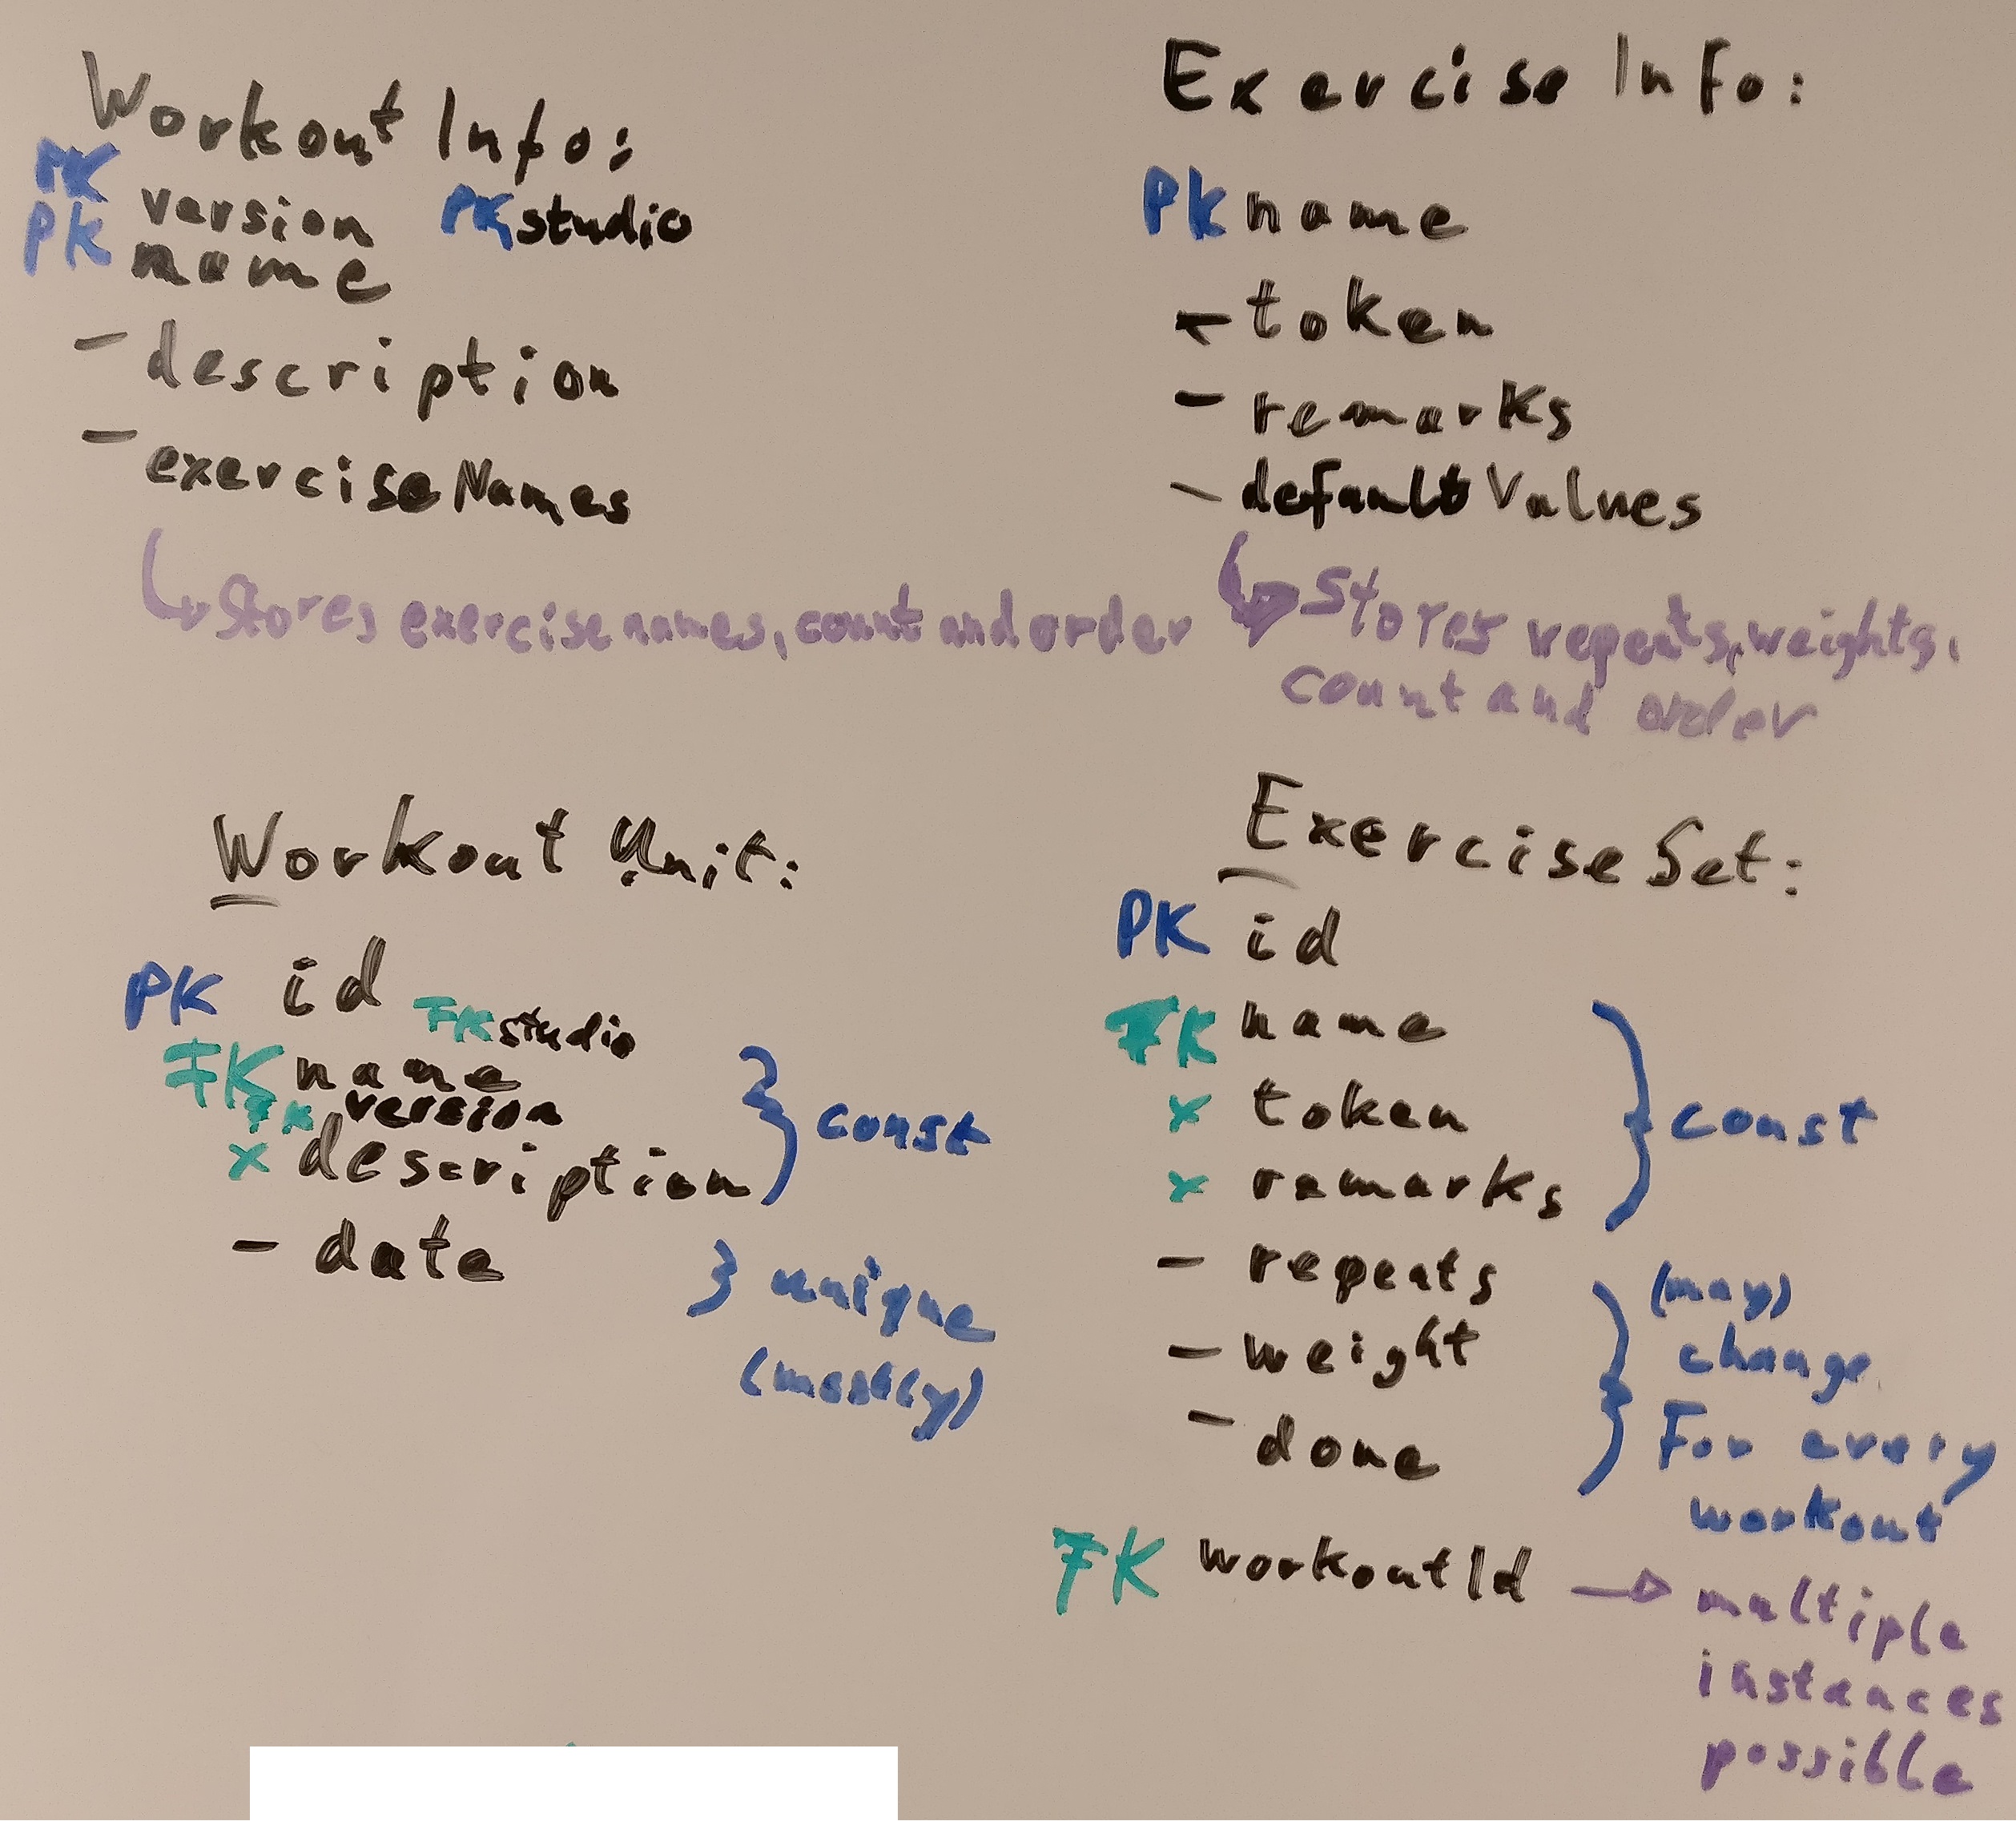 Workout Info:
PK version PK studio
PK name
- description
- exerciseNames
Stores exercise names, count and order
Exercise Info:
PK name
- token
- remarks
- defaultValues
Stores repeats, weights,
count and order
Workout Unit:
PK id
FK studio
FK name
FK version
x description
} const
- date
} unique
(mostly)
Exercise Set:
PK id
FK name
x token
x remarks
} const
- repeats
- weight
- done
} (may)
change
For every
workout
FK workoutId
multiple
instances
possible